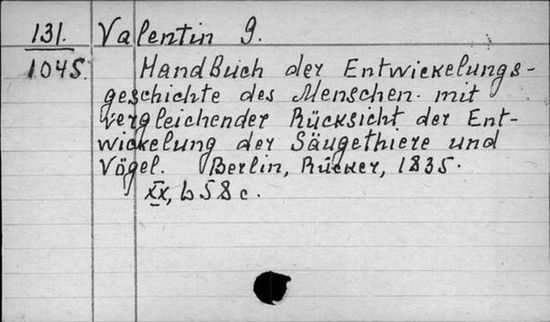 131. Valentin G.
1045. Handbuch der Entwickelungs-
geschichte des Menschen mit
vergleichender Rücksicht der Ent-
wickelung der Säugethiere und
Vögel. Berlin, Rücker, 1835.
XX, 658 c.